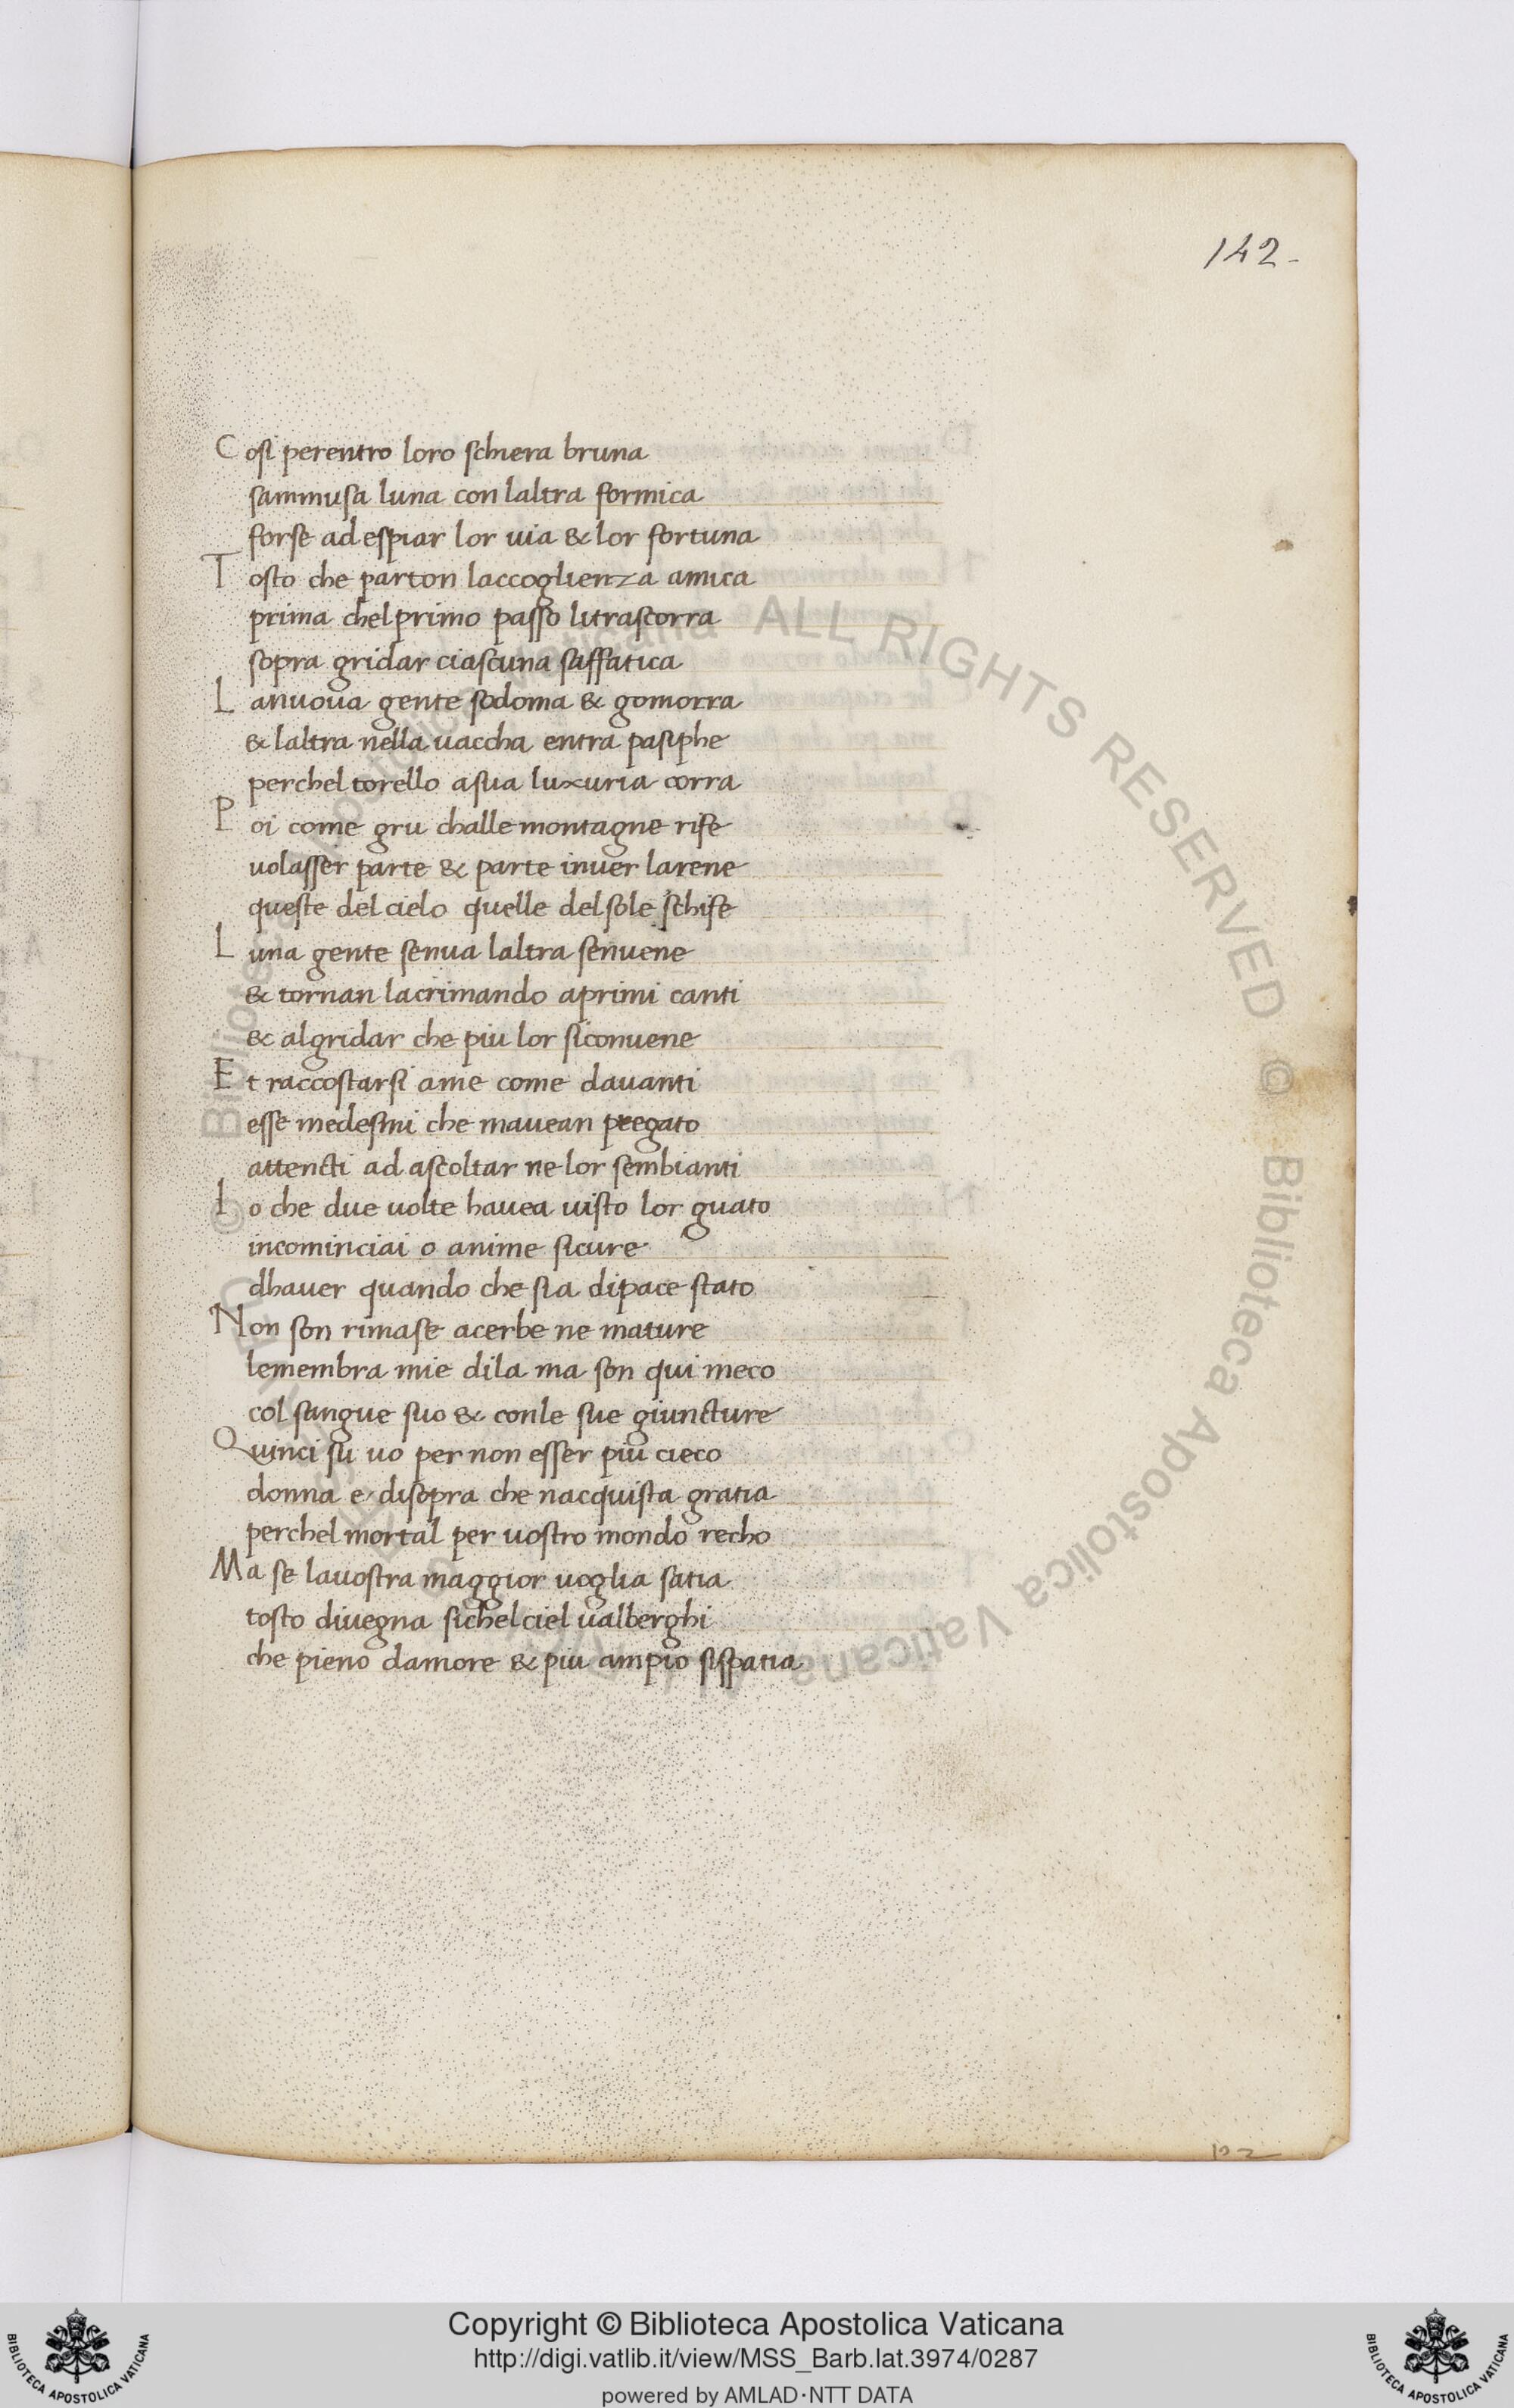 142
Cosi perentro loro schiera bruna
sammusa luna con laltra formica
forse ad espiar lor uia & lor fortuna
Tosto che parton laccoglienza amica
prima chel primo passo litrascorra
sopra gridar ciascuna saffatica
Lanuova gente sodoma & gomorra
& laltra nella uaccha entra pasiphe
perchel torello asua luxuria corra
Poi come gru challe montagne rife
uolasser parte & parte inuer larene
queste del cielo quelle del sole schife
Luna gente senua laltra senuene
& tornan lacrimando aprimi canti
& algridar che piu lor siconuene
Et raccostarsi ame come dauanti
esse medesmi che mauean pregato
attencti ad ascoltar ne lor sembianti
Io che due uolte hauea uisto lor guato
incominciai o anime sicure
dhauer quando che sia dipace stato
Non son rimase acerbe ne mature
lemembra mie dila ma son qui meco
col sangue suo & conle sue giuncture
Quinci su uo per non esser piu cieco
donna e disopra che nacquista gratia
perchel mortal per uostro mondo recho
Ma se lauostra maggior uoglia satia
tosto diuegna sichel ciel ualberghi
che pieno damore & piu ampio sispatia
© Biblioteca Apostolica Vaticana ALL RIGHTS RESERVED © Biblioteca Apostolica Vaticana
Copyright © Biblioteca Apostolica Vaticana
http://digi.vatlib.it/view/MSS_Barb.lat.3974/0287
powered by AMLAD·NTT DATA
BIBLIOTECA APOSTOLICA VATICANA
BIBLIOTECA APOSTOLICA VATICANA